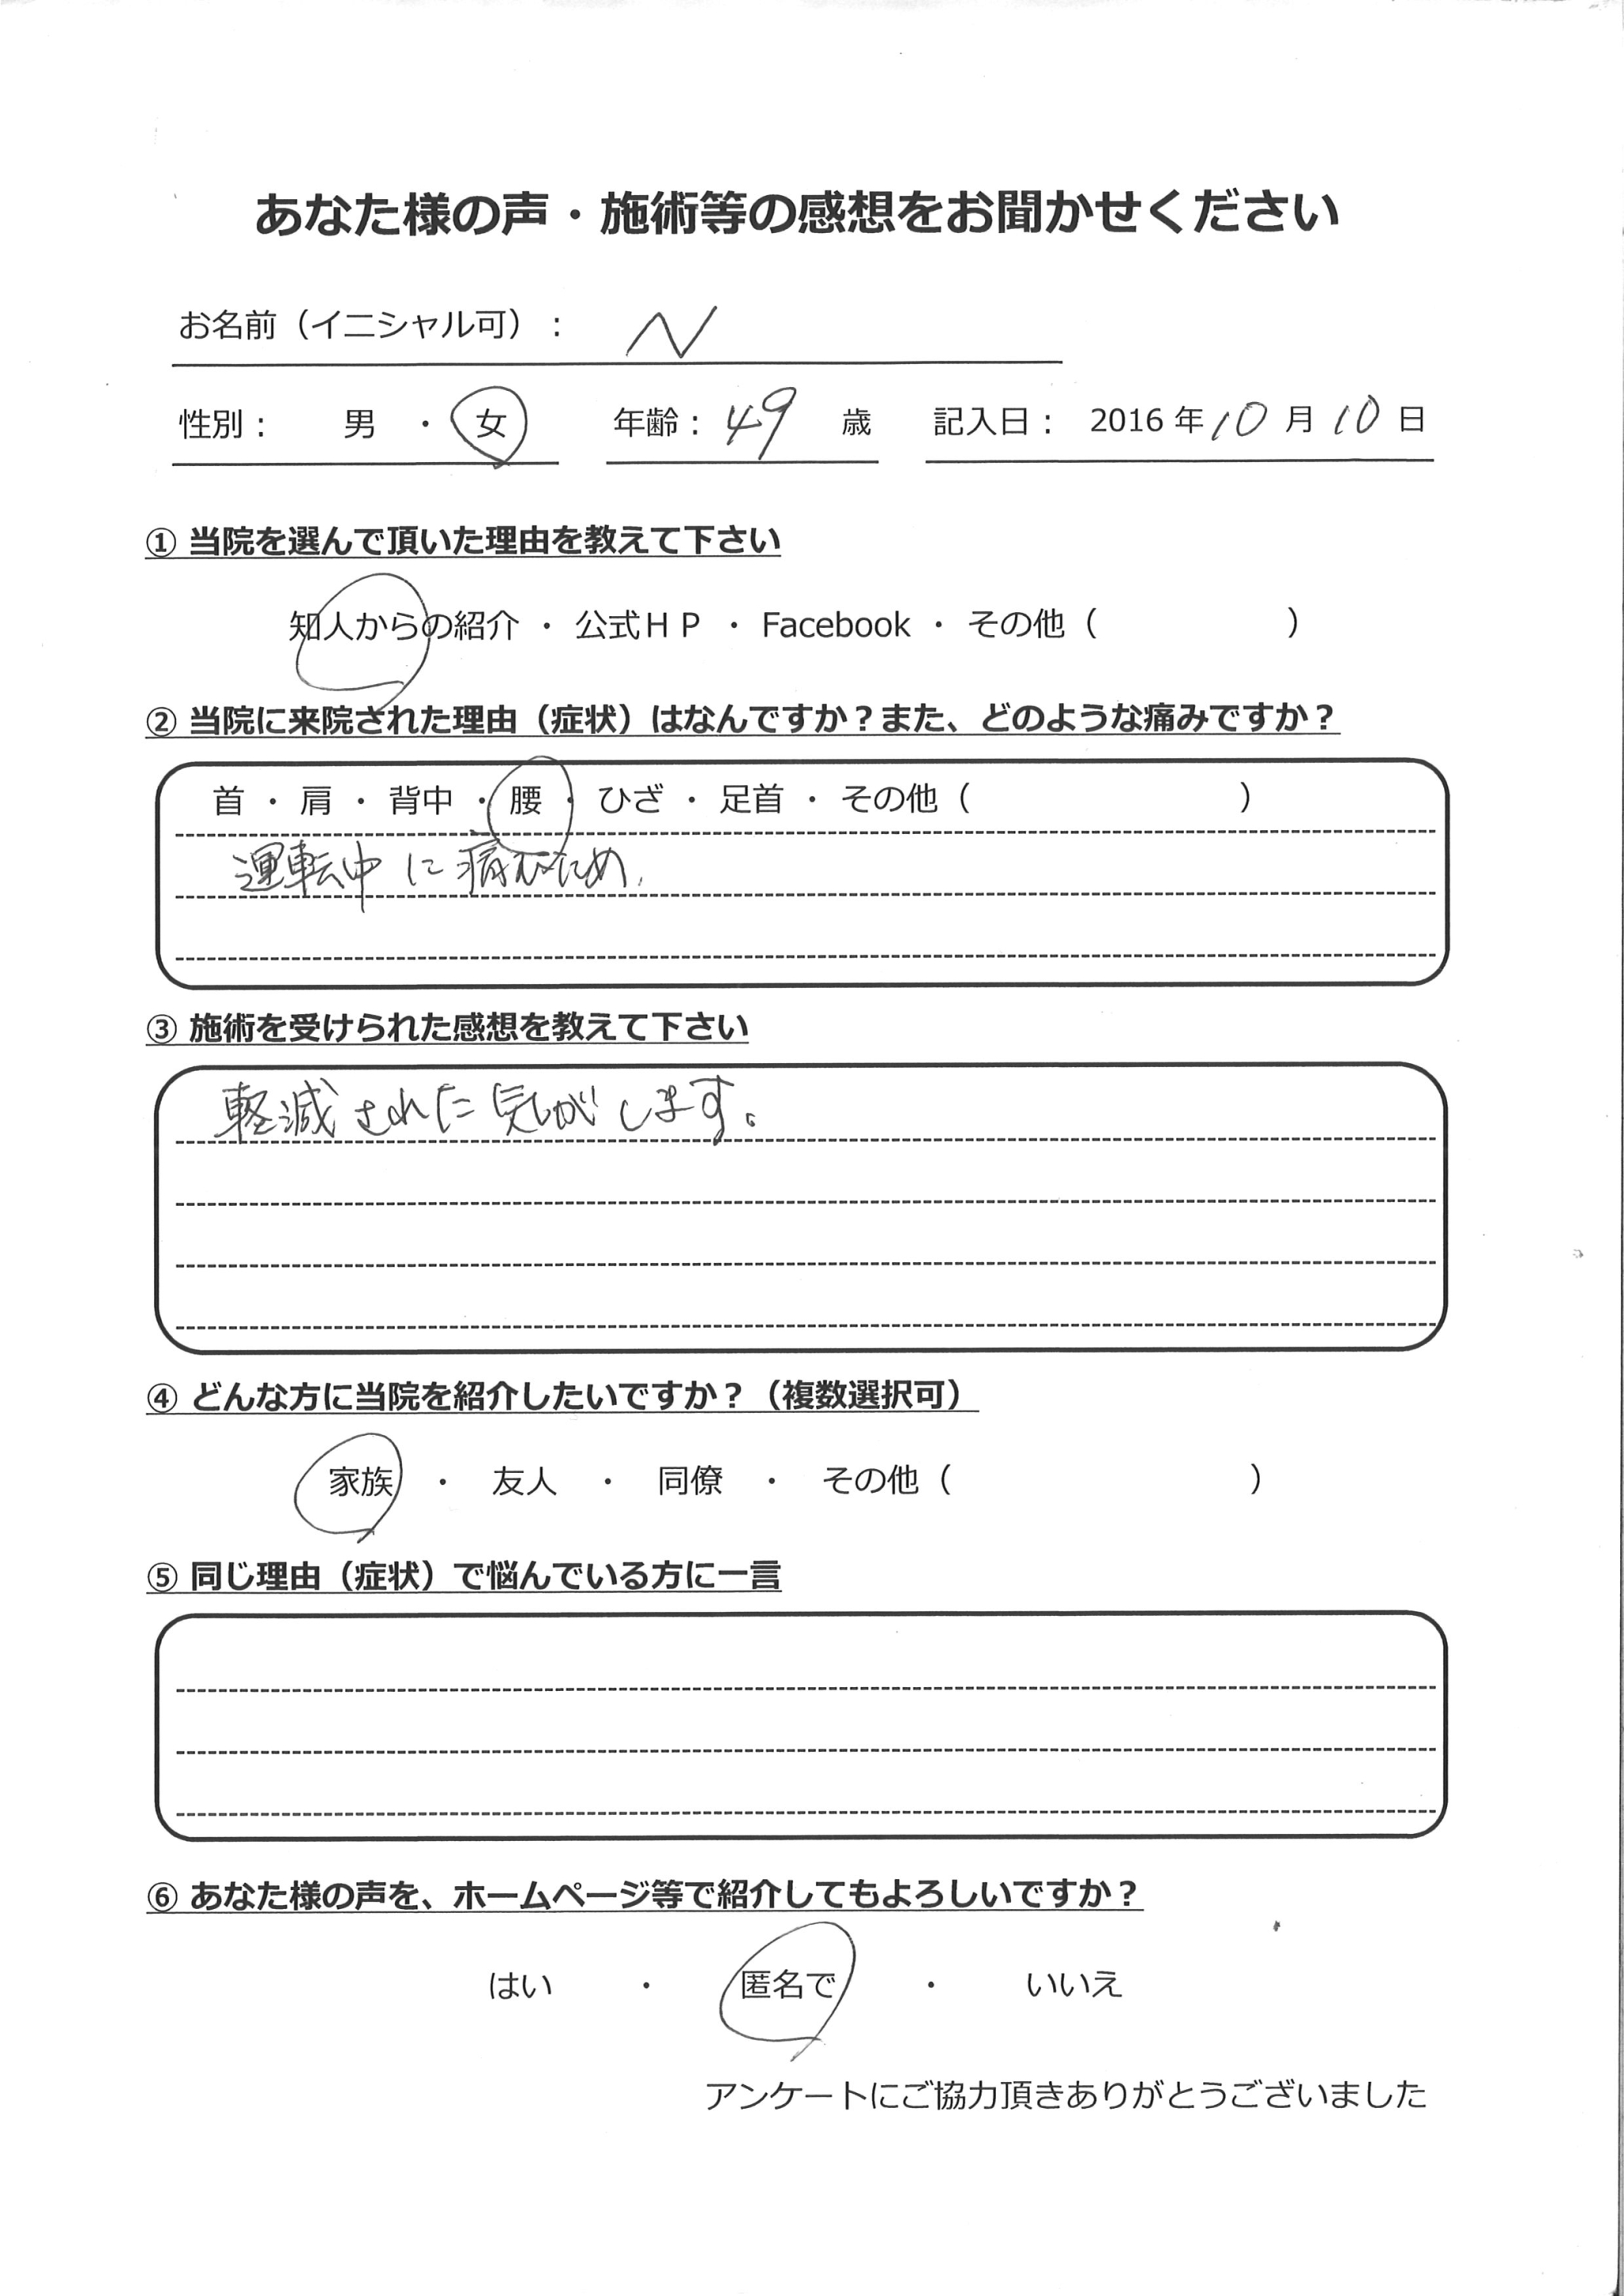 あなた様の声・施術等の感想をお聞かせください
お名前（イニシャル可）： N
性別： 男 ・ 女 年齢： 49 歳 記入日： 2016 年 10 月 10 日
① 当院を選んで頂いた理由を教えて下さい
知人からの紹介 ・ 公式ＨＰ ・ Facebook ・ その他（ ）
② 当院に来院された理由（症状）はなんですか？また、どのような痛みですか？
首 ・ 肩 ・ 背中 ・ 腰 ・ ひざ ・ 足首 ・ その他（ ）
運転中に痛むため.
③ 施術を受けられた感想を教えて下さい
軽減された気がします。
④ どんな方に当院を紹介したいですか？（複数選択可）
家族 ・ 友人 ・ 同僚 ・ その他（ ）
⑤ 同じ理由（症状）で悩んでいる方に一言
⑥ あなた様の声を、ホームページ等で紹介してもよろしいですか？
はい ・ 匿名で ・ いいえ
アンケートにご協力頂きありがとうございました